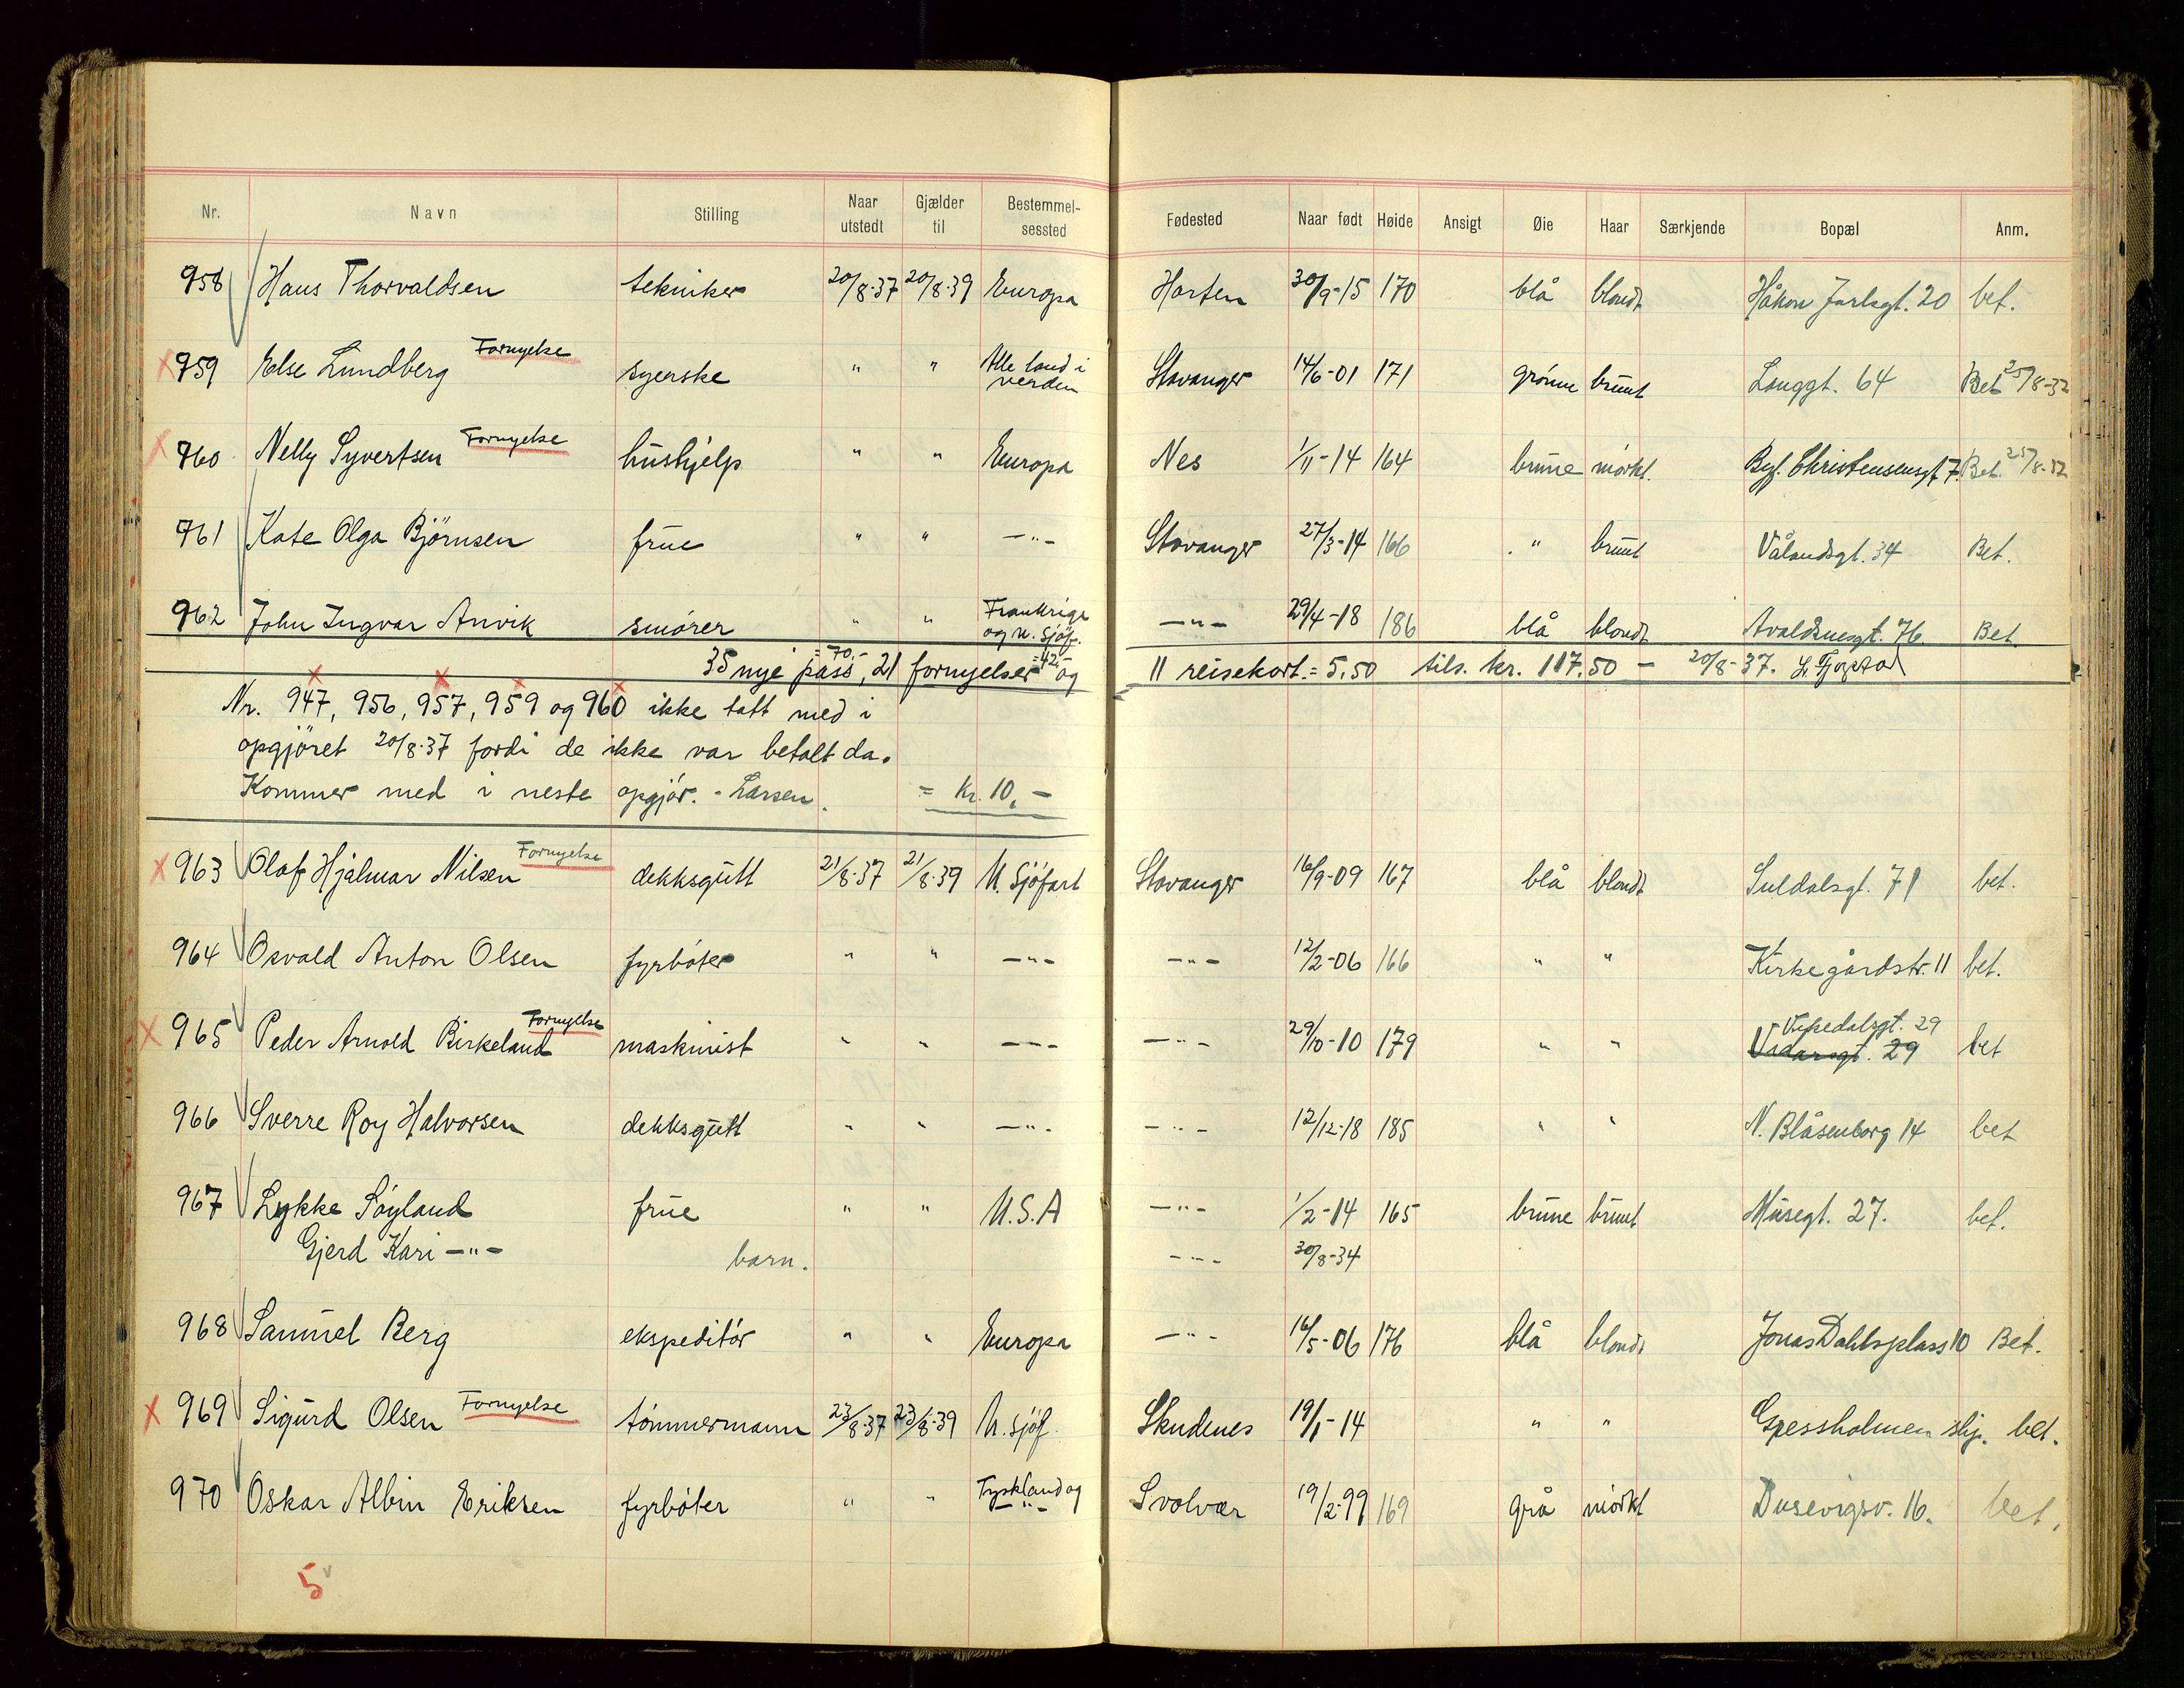 Nr. Navn Stilling Naar utstedt Gjælder til Bestemmelsessted Fødested Naar født Høide Ansigt Øie Haar Særkjende Bopæl Anm.
958 Hans Thorvaldsen tekniker 20/8-37 20/8-39 Europa Horten 30/9-15 170 blå blondt Håkon Jarlsgt. 20 bet.
959 Else Lundberg Fornyelse syerske " " Alle land i verden Stavanger 14/6-01 171 grønne brunt Langgt. 64 Bet 25/8-37
960 Nelly Syvertsen Fornyelse hushjelp " " Europa Nes 1/11-14 164 brune mørkt. Christensensgt 7. Bet. 25/8-37
961 Kate Olga Bjørnsen frue " " —"— Stavanger 27/3-14 166 " brunt Vålandsgt. 34 Bet.
962 John Ingvar Anvik smører " " Frankrige og u. sjøf. —"— 29/4-18 186 blå blondt Avaldsnesgt. 76. Bet.
35 nye pass = 70,-, 21 fornyelser = 42,- og 11 reisekort = 5,50 tils. kr. 117.50 — 20/8-37.
Nr. 947, 956, 957, 959 og 960 ikke tatt med i
opgjøret 20/8-37 fordi de ikke var betalt da.
Kommer med i neste opgjør. - Larsen. = Kr. 10,-
963 Olaf Hjalmar Nilsen Fornyelse dekksgutt 21/8-37 21/8-39 U. Sjøfart Stavanger 16/9-09 167 blå blondt Suldalsgt. 71 bet.
964 Osvald Anton Olsen fyrbøter " " —"— —"— 12/2-06 166 " " Kirkegårdstr. 11 bet.
965 Peder Arnold Birkeland Fornyelse maskinist " " —"— —"— 29/10-10 179 " " Vidarsgt. 29 Vepedalsgt. 29 bet
966 Sverre Roy Halvorsen dekksgutt " " —"— —"— 12/12-18 185 " " N. Blåsenborg 14 bet
967 Lykke Søyland frue " " U.S.A —"— 1/2-14 165 brune brunt Musegt. 27. bet.
Gjerd Kari —"— barn. —"— 30/8-34
968 Samuel Berg ekspeditør " " Europa —"— 16/5-06 176 blå blondt Jonas Dahlsplass 10 Bet.
969 Sigurd Olsen Fornyelse tømmermann 23/8-37 23/8-39 U. sjøf. Skudenes 19/1-14 " " skj. bet.
970 Oskar Albin Eriksen fyrbøter " " Tyskland og —"— Svolvær 19/2-99 169 grå mørkt Dusevigsv. 16. bet.
5